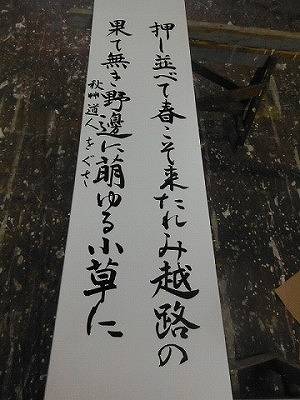 押し並べて春こそ来たれみ越路の
果て無き野邊に萌ゆる小草に
秋艸道人 をぐさ